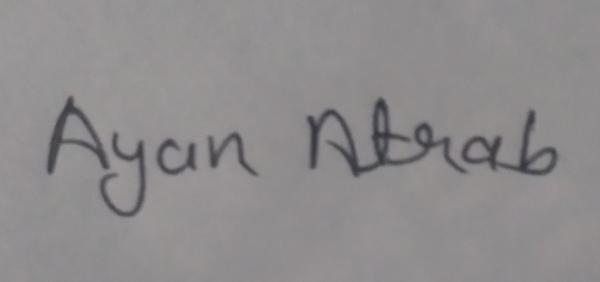 Ayan Atrab